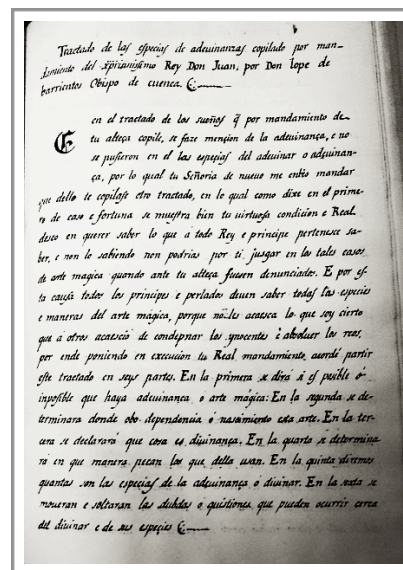 Tractado de las especias de adeuinanzas copilado por man-
damiento del xp̃rianissimo Rey Don Juan, por Don lope de
barrientos Obispo de cuenca.
E en el tractado de los sueños q̃ por mandamiento de
tu alteça copilé, se faze mençion de la adeuinança, e no
se pusieron en el las especias del adeuinar o adeuinan-
ça, por lo qual tu Señoria de nueuo me enbio mandar
que dello te copilase otro tractado, en lo qual como dixe en el prime-
ro de caso e fortuna se muestra bien tu virtuosa condicion e Real
deseo en querer saber lo que á todo Rey e principe pertenesce sa-
ber, e non lo sabiendo non podrias por ti jusgar en los tales casos
de arte magica quando ante tu alteça fuesen denunciados. E por es-
ta causa todos los principes e perlados deuen saber todas las especies
e maneras del arte mágica, porque no les acaesca lo que soy cierto
que á otros acaesció de condepnar los ynocentes é absoluer los reos,
por ende poniendo en execuçion tu Real mandamiento, acordé partir
este tractado en seys partes. En la primera se dirá si es posible ó
inposible que haya adeuinança o arte mágica: En la segunda se de-
terminara donde obo dependencia ó nasçimiento esta arte. En la ter-
cera se declarará que cosa es diuinança. En la quarta se determina
rá en que manera pecan los que della usan. En la quinta diremos
quantas son las especias de la adeuinança o diuinar. En la sesta se
moueran e soltaran las dubdas o quistiones que pueden ocurrir cerca
del diuinar e de sus especies